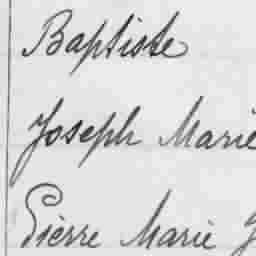 Baptiste
Joseph Marie
Pierre Marie